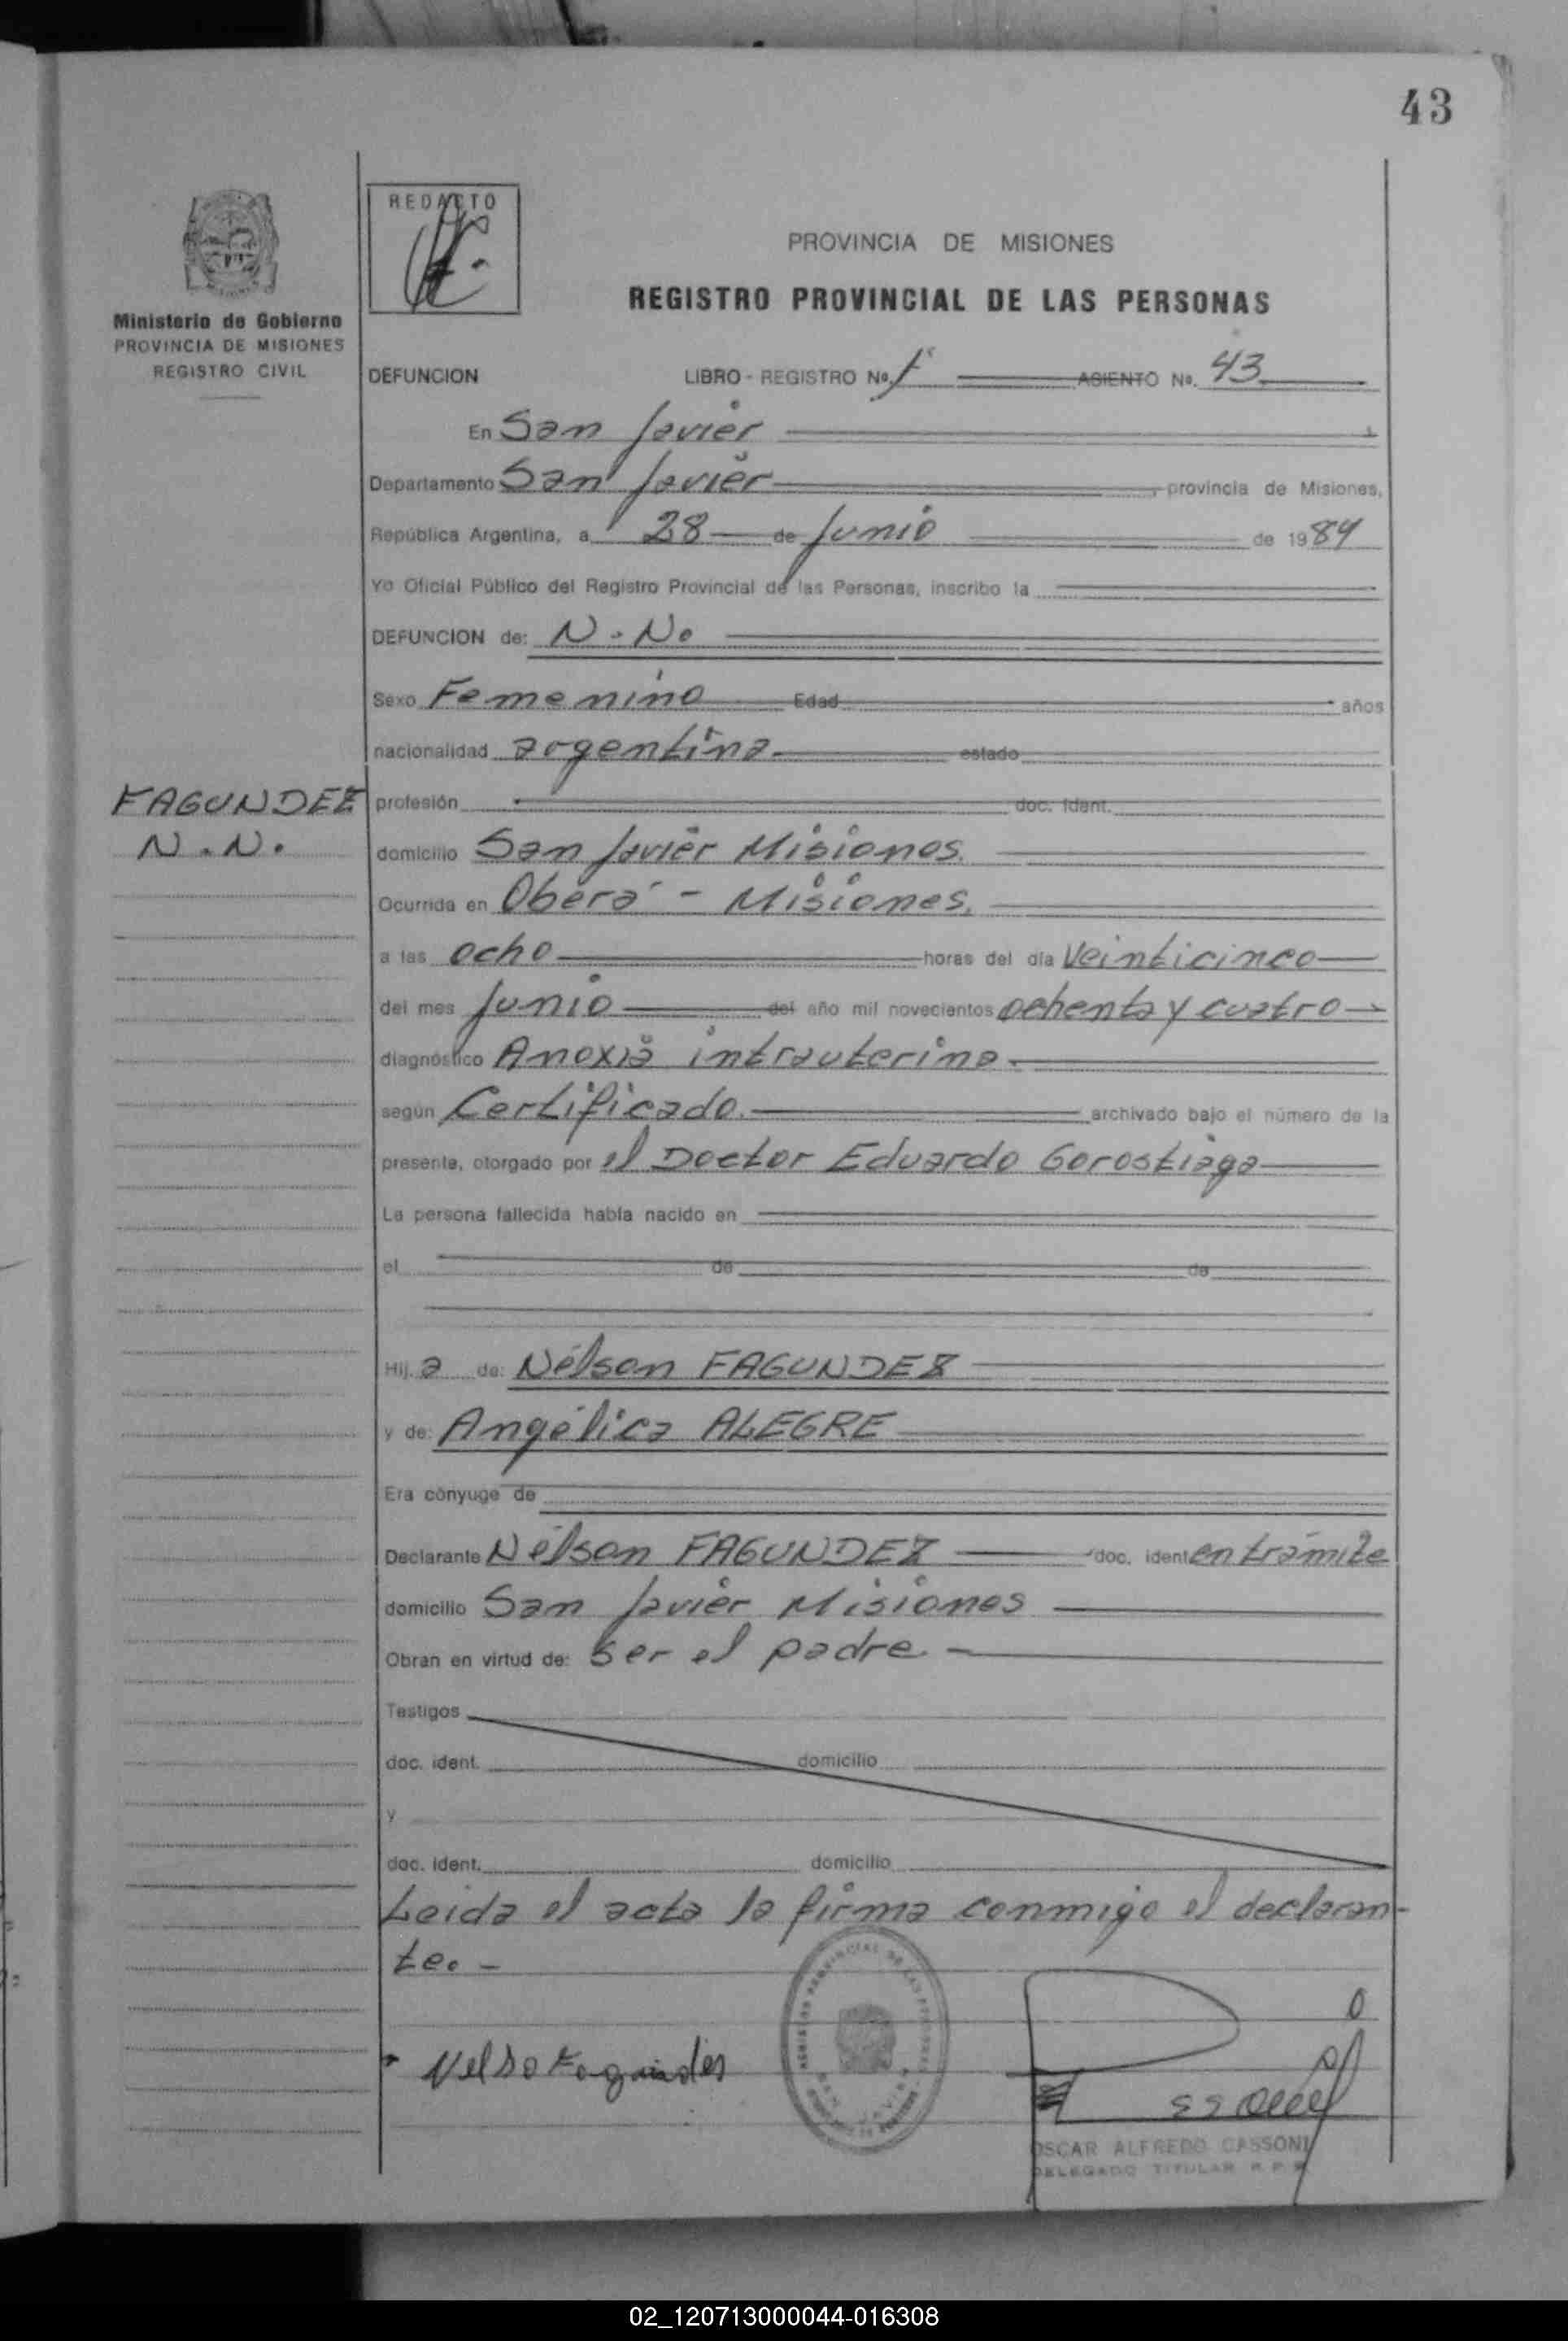 43
REDACTO
PROVINCIA DE MISIONES
REGISTRO PROVINCIAL DE LAS PERSONAS
Ministerio de Gobierno
PROVINCIA DE MISIONES
REGISTRO CIVIL
DEFUNCION LIBRO - REGISTRO No. ASIENTO No. 43
En San Javier
Departamento San Javier, provincia de Misiones,
República Argentina, a 28 de Junio de 1984
Yo Oficial Público del Registro Provincial de las Personas, inscribo la
DEFUNCION de: N.N.
Sexo Femenino Edad años
nacionalidad argentina estado
FAGUNDEZ
N.N.
profesión doc. ident.
domicilio San Javier Misiones.
Ocurrida en Oberá - Misiones.
a las ocho horas del día Veinticinco
del mes Junio del año mil novecientos ochenta y cuatro
diagnóstico Anoxia intrauterina.
según Certificado. archivado bajo el número de la
presente, otorgado por el Doctor Eduardo Gorostiaga
La persona fallecida había nacido en
el de de
Hij.a de: Nélson FAGUNDEZ
y de: Angélica ALEGRE
Era cónyuge de
Declarante Nélson FAGUNDEZ doc. ident. en trámite
domicilio San Javier Misiones
Obran en virtud de: ser el padre.
Testigos
doc. ident. domicilio
y
doc. ident. domicilio
Leida el acta la firma conmigo el declaran-
te. -
Nelso Fagundes
OSCAR ALFREDO CASSONI
DELEGADO TITULAR R. P. P.
02_120713000044-016308